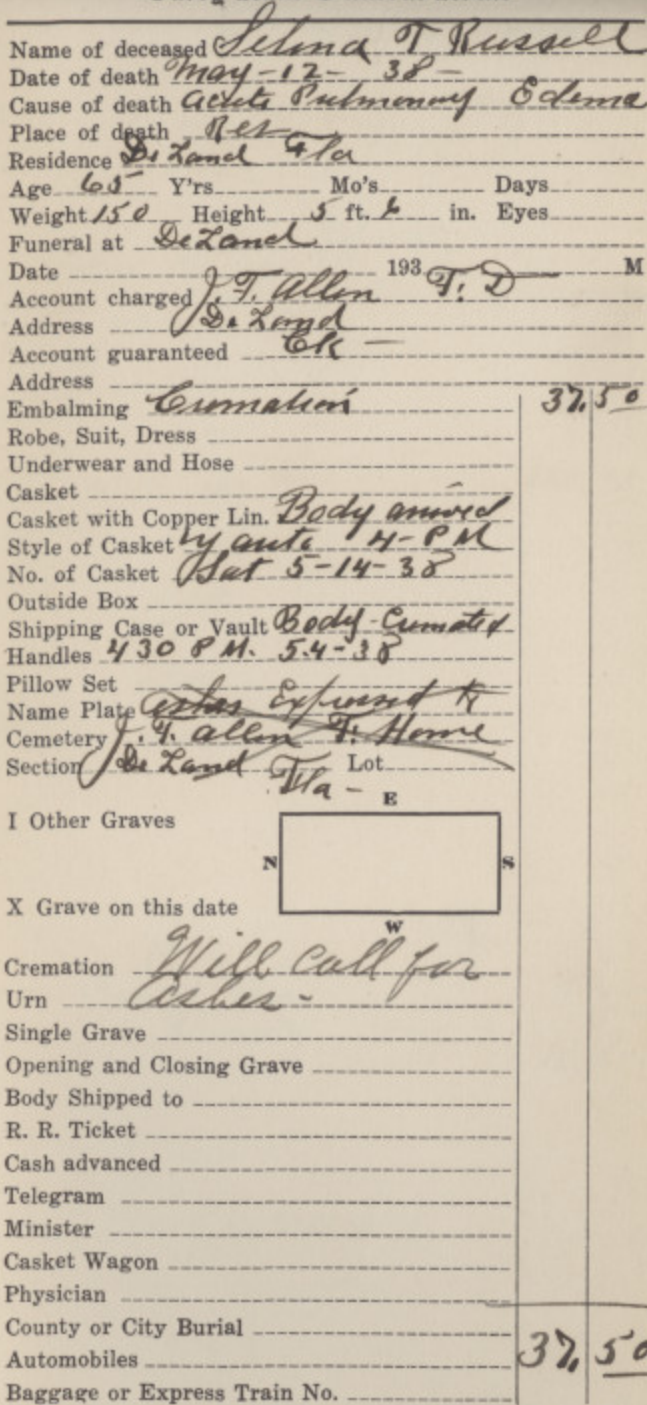 Name of deceased Selma T Russell
Date of death May-12- 38-
Cause of death Acute Pulmonary Edema
Place of death Res
Residence De Land Fla
Age 65 Y'rs Mo's Days
Weight 150 Height 5 ft. 6 in. Eyes
Funeral at De Land
Date 193 M
Account charged J. T. Allen F. D
Address De Land
Account guaranteed Ok -
Address
Embalming Cremation 37.50
Robe, Suit, Dress
Underwear and Hose
Casket
Casket with Copper Lin. Body arrived
Style of Casket by auto 4-PM
No. of Casket Sat 5-14-38
Outside Box
Shipping Case or Vault Body Cremated
Handles 430 PM. 5.4-38
Pillow Set
Name Plate Ashes Expressed to
Cemetery J. T. Allen F. Home
Section De Land Fla - Lot
E
I Other Graves
N S
X Grave on this date
W
Cremation Will Call for
Urn Ashes -
Single Grave
Opening and Closing Grave
Body Shipped to
R. R. Ticket
Cash advanced
Telegram
Minister
Casket Wagon
Physician
County or City Burial
Automobiles 37.50
Baggage or Express Train No.